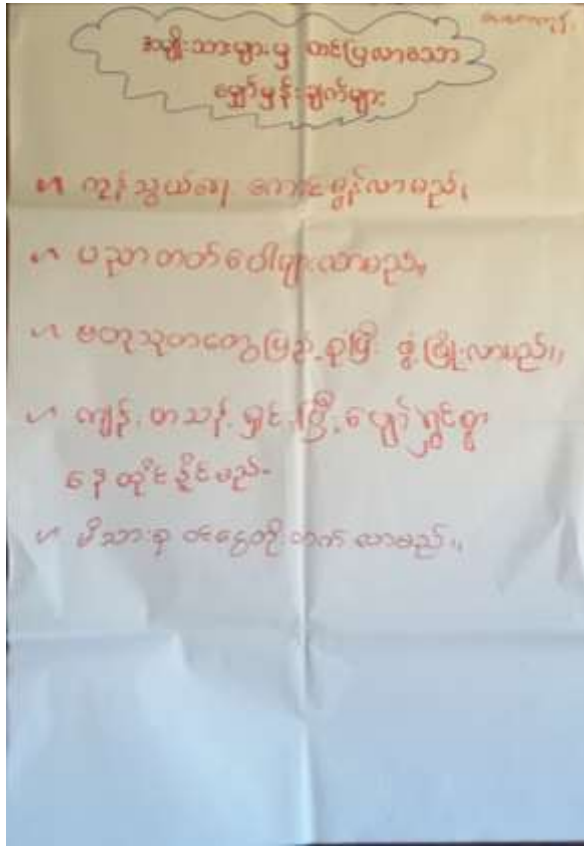 အမျိုးသားများမှ တင်ပြလာသော
မျှော်မှန်းချက်များ
ကုန်သွယ်ရေး ကောင်းမွန်လာမည်၊
ပညာတတ်ပေါများလာမည်။
ဗဟုသုတတွေပြည့်စုံပြီး ဖွံ့ဖြိုးလာမည်။
ကျန်းမာသန့်ရှင်းပြီး ပျော်ရွှင်စွာ
နေထိုင်နိုင်မည်
မိသားစု ဝင်ငွေတိုးတက်လာမည်။